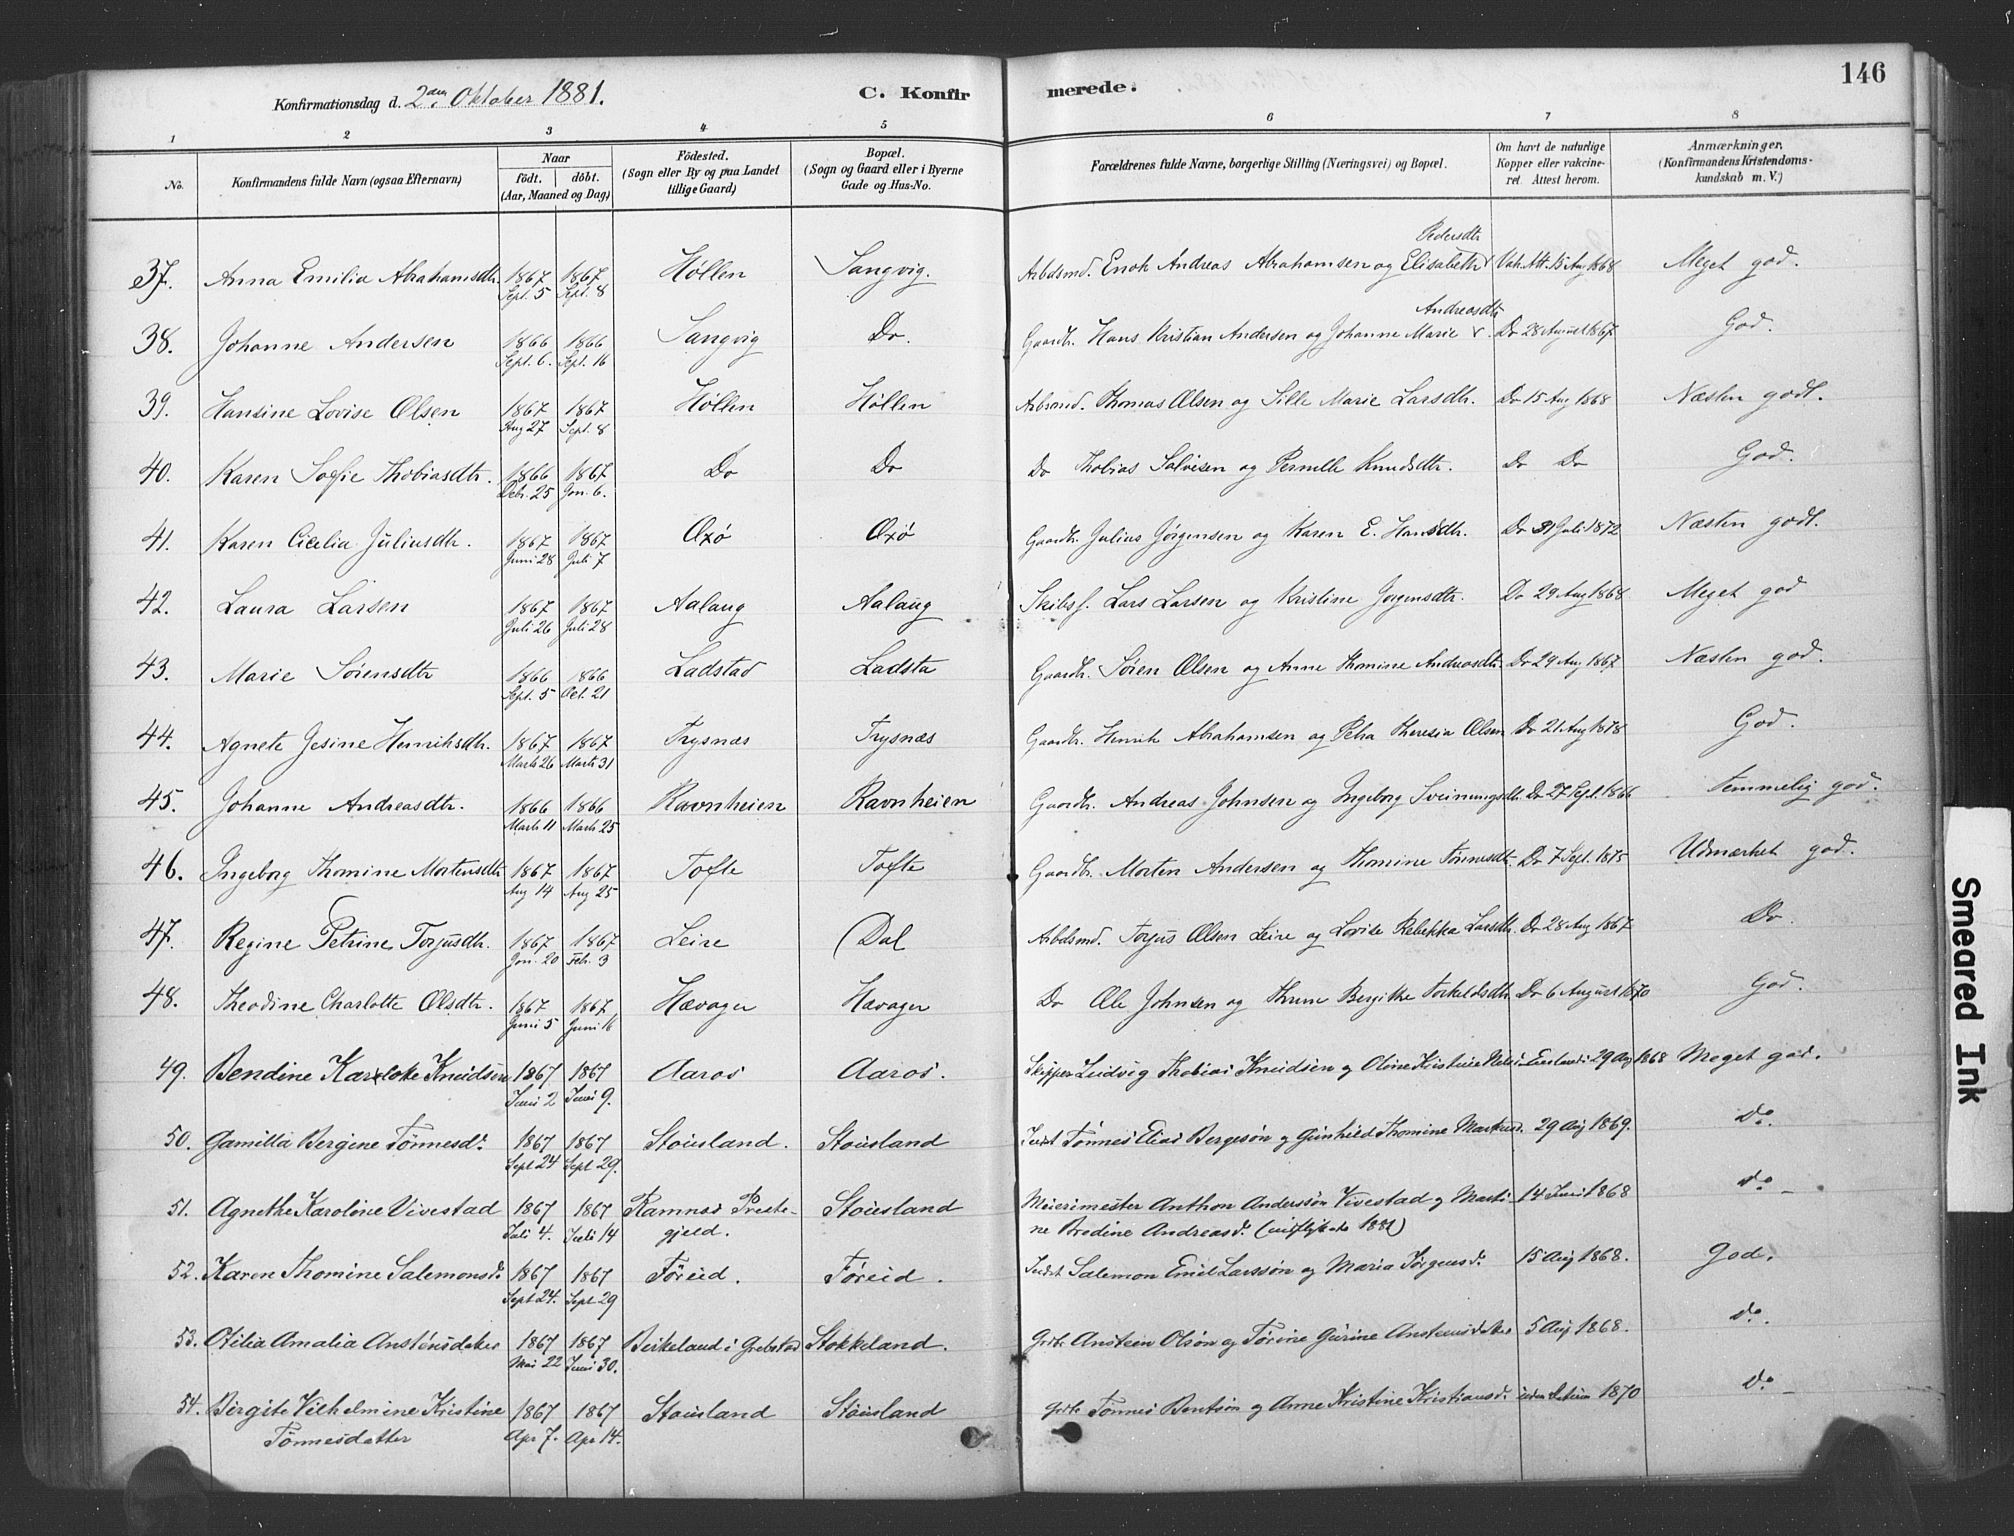 146
Konfirmationsdag d. 2den Oktober 1881. C. Konfirmerede.
1 2 3 4 5 6 7 8
No. Konfirmandens fulde Navn (ogsaa Efternavn) Naar födt. döbt. (Aar, Maaned og Dag) Födested. (Sogn eller By og paa Landet tillige Gaard) Bopæl. (Sogn og Gaard eller i Byerne Gade og Hus-No. Forældrenes fulde Navne, borgerlige Stilling (Næringsvei) og Bopæl. Om havt de naturlige Kopper eller vakcineret. Attest herom. Anmærkninger, (Konfirmandens Kristendomskundskab m. V.)
Pedersdtr
37. Anna Emilia Abrahamsdtr. 1867 1867 Høllen Sangvig. Arbdsmd. Enok Andreas Abrahamsen og Elisabeth Vak. Att. 15 Aug 1868 Meget god.
Sept. 5 Sept. 8
Andreasdtr
38. Johanne Andersen 1866 1866 Sangvig Do. Gaardbr. Hans Kristian Andersen og Johanne Marie Do 28 August 1867 God.
Sept. 6. Sept. 16
39. Hansine Lovise Olsen 1867 1867 Høllen Høllen Arbsmd. Thomas Olsen og Sille Marie Larsdtr. Do 15 Aug 1868 Næsten godt.
Aug 27 Sept. 8
40. Karen Sofie Thobiasdtr. 1866 1867 Do Do Do Thobias Salvesen og Pernille Knudsdtr. Do Do God.
Debr. 25 Jan. 6.
41. Karen Cicelia Juliusdtr. 1867 1867 Oxø Oxø Gaardbr. Julius Jørgensen og Karen E. Hansdtr. Do 31 Juli 1872 Næsten godt.
Juni 28 Juli 7
42. Laura Larsen 1867 1867 Aalaug Aalaug Skibsf. Lars Larsen og Kristine Jørgensdtr. Do 29 Aug 1868 Meget god
Juli 26 Juli 28
43. Marie Sørensdtr 1866 1866 Ladstad Ladsta Gaardbr. Søren Olsen og Anne Thomine Andreasdtr. Do 29 Aug 1867 Næsten god.
Sept. 5 Oct. 21
44. Agnete Jesine Henriksdtr. 1867 1867 Trysnæs Trysnæs Gaardbr. Henrik Abrahamsen og Petra Theresia Olsen Do 21 Aug 1878 God.
Marts 26 Marts 31
45. Johanne Andreasdtr. 1866 1866 Ravnheien Ravnheien Gaardbr. Andreas Johnsen og Ingeborg Sveinungsdtr. Do 27 Sept. 1866 Temmelig god.
Marts 11 Marts 25
46. Ingeborg Thomine Mortensdtr 1867 1867 Tofte Tofte Gaardbr. Morten Andersen og Thomine Tønnesdtr. Do 7 Sept. 1875 Udmærket god.
Aug 14 Aug 25
47. Regine Petrine Torjusdtr. 1867 1867 Leire Dal Arbdsmd. Torjus Olsen Leire og Lovise Rebekka Larsdtr. Do 28 Aug 1867 Do.
Jan. 20 Febr. 3
48. Theodine Charlotte Olsdtr. 1867 1867 Hævager Hævager Do Ole Johnsen og Thrine Bergitte Torkeldsdtr. Do 6 August 1870 God.
Juni 5 Juni 16
49. Bendine Karloke Knudsen 1867 1867 Aaros Aaros. Skipper Ludvig Thobias Knudsen og Oline Kristine 29 Aug 1868 Meget god.
Juni 2 Juni 9.
50. Gamilla Bergine Tønnesd. 1867 1867 Stousland. Stousland Indst Tønnes Elias Bergesøn og Gunhild Thomine Markusd. 29 Aug 1869. Do.
Sept 24 Sept 29.
51. Agnethe Karoline Vivestad 1867 1867 Ramnes Preste- Stousland Meierimester Anthon Anderssøn Vivestad og Marti- 14 Juni 1868 do
Juli 4. Juli 14 gjeld. ne Bredine Andreasd. (indflyttede 1881)
52. Karen Thomine Salemonsd. 1867 1867 Føreid. Føreid. Indst Salemon Emil Larssøn og Maria Jørgensd. 15 Aug 1868. God.
Sept 24. Sept 29
53. Otilia Amalia Anstensdatter 1867 1867 Birkeland i Grebstad Stokkeland. Grdbr Ansteen Olsøn og Tørine Gurine Anstensdatter 5 Aug 1868. do.
Mai 22 Juni 30.
54. Birgite Vilhelmine Kristine 1867 1867 Stousland Stousland Grdbr Tønnes Bentsøn og Anne Kristine Kristiansd. uden Datum 1870 do
Tønnesdatter Apr 7. Apr 14.
Smeared Ink